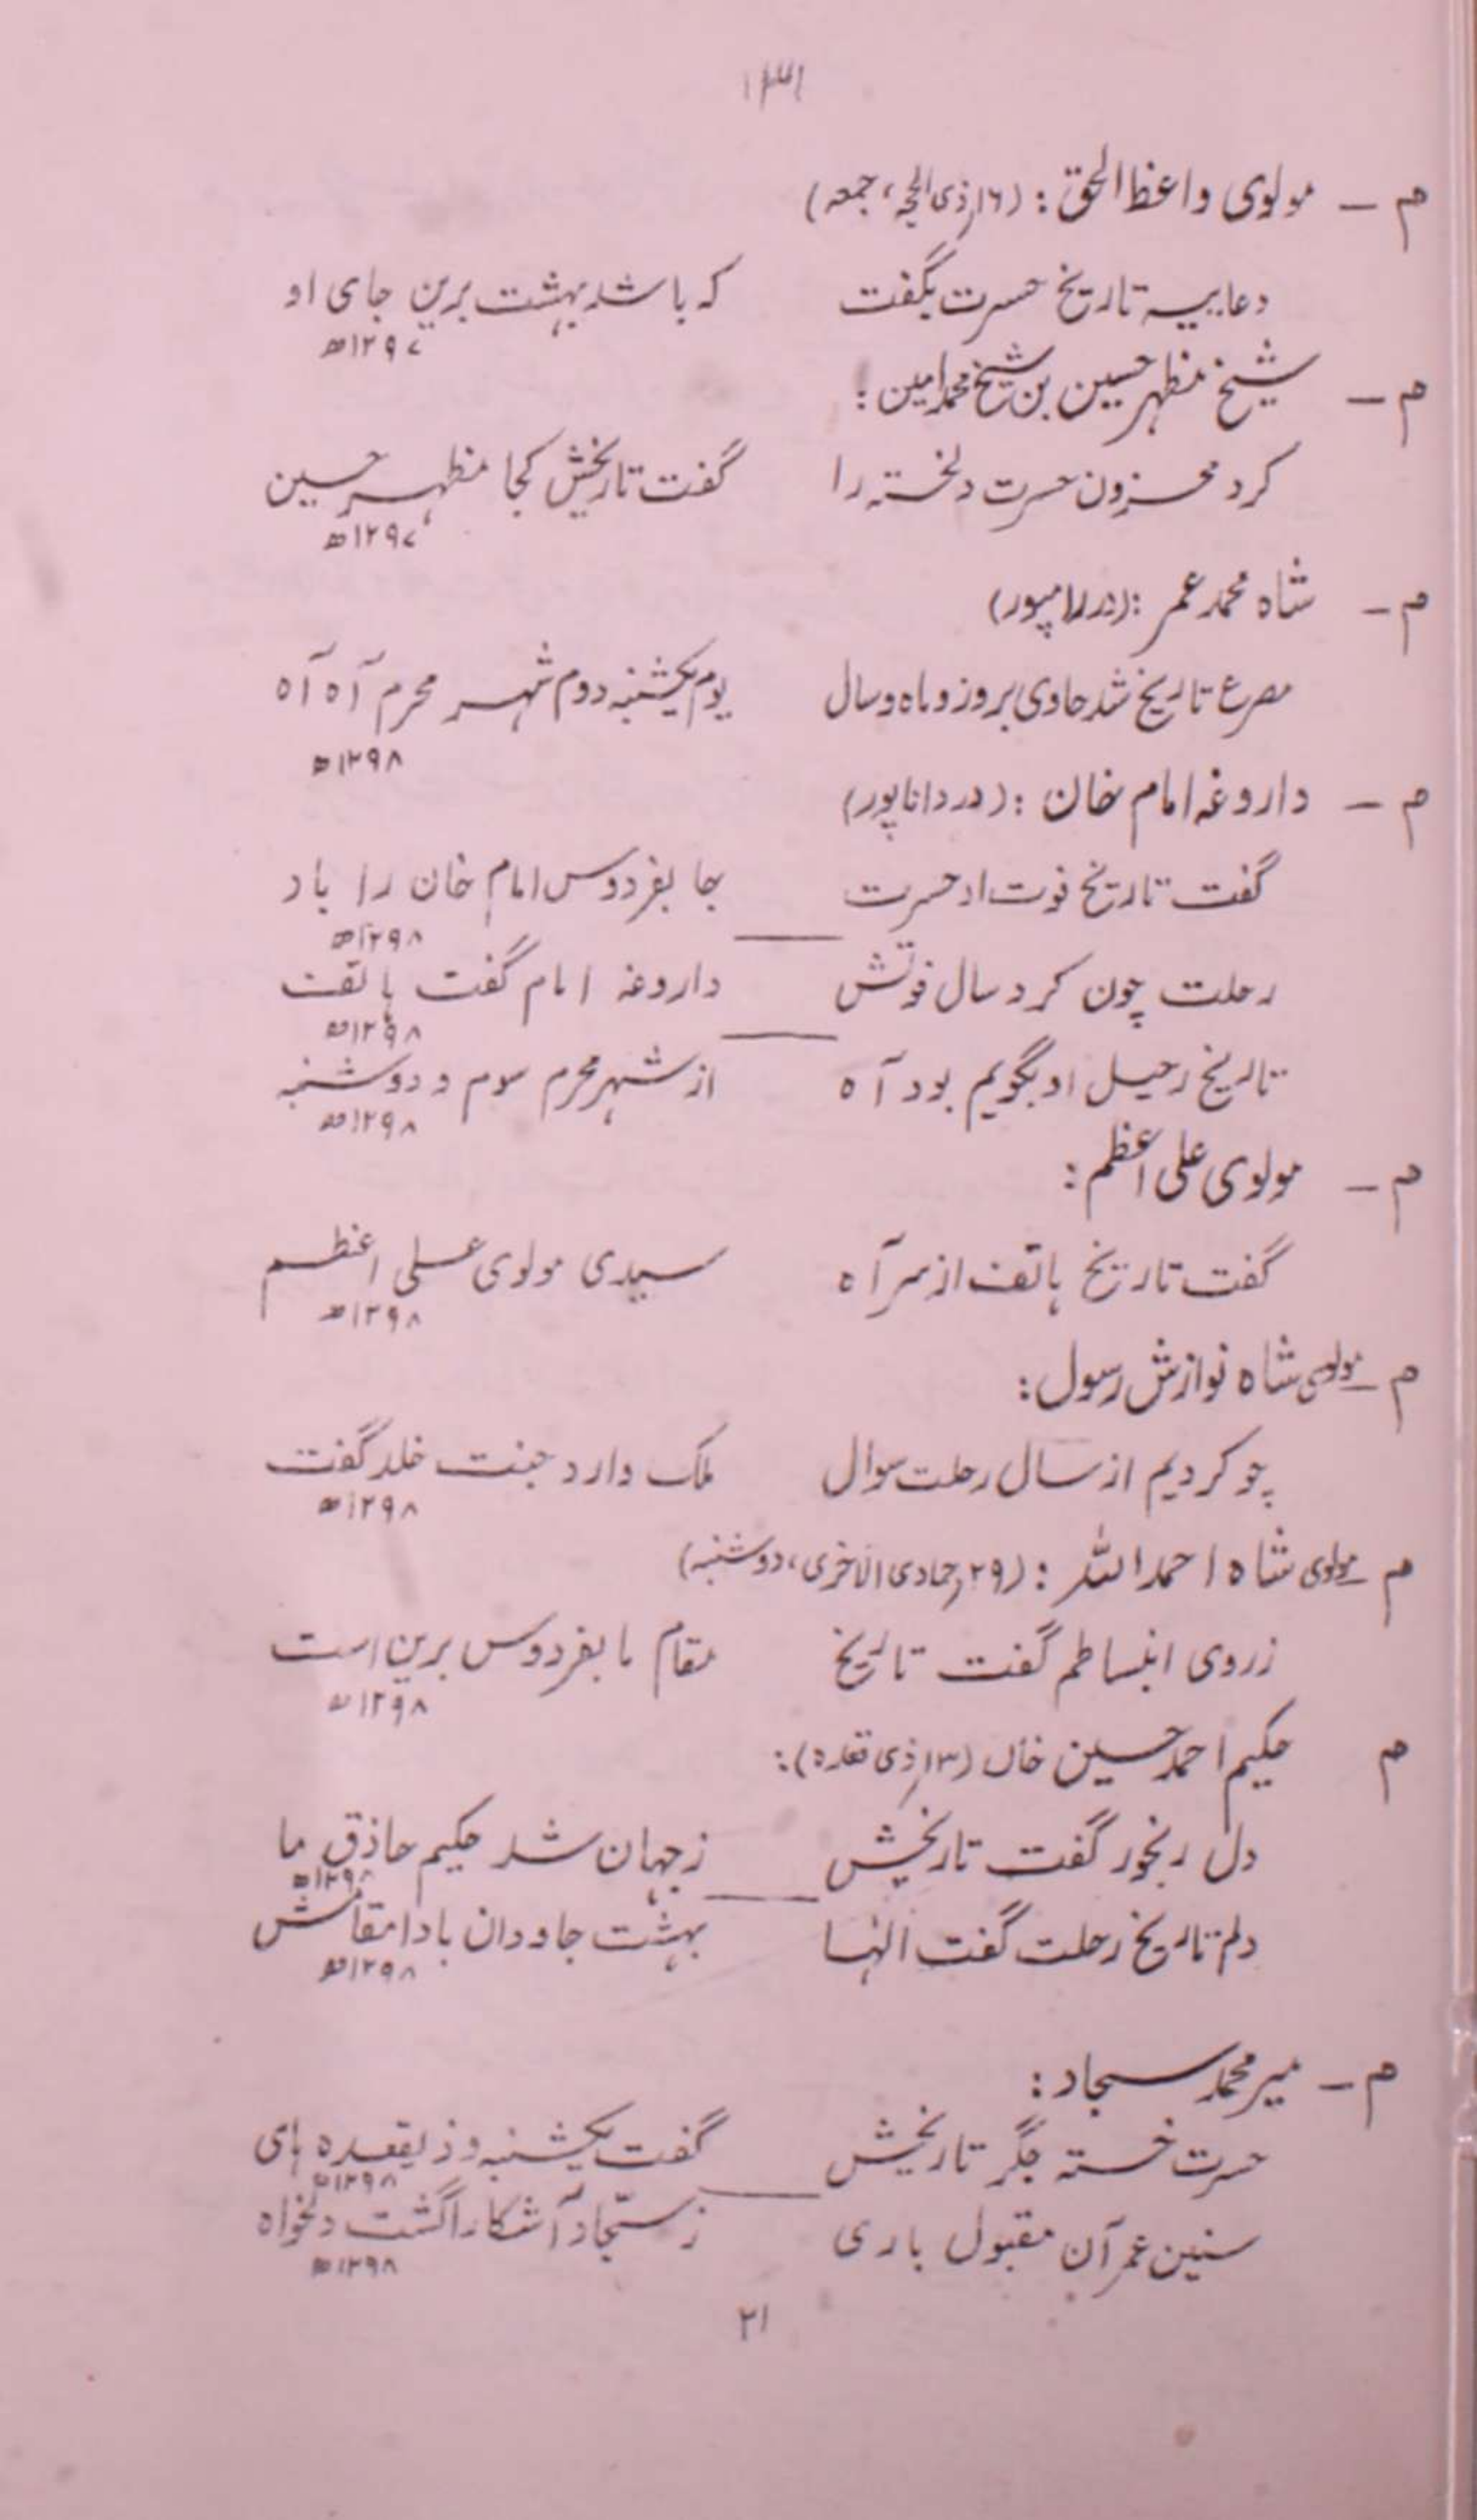 ۱۳۱
م – مولوی واعظ الحق : (۱۶ر ذی الحجہ، جمعہ)
دعاییہ تاریخ حسرت بگفت کہ باشد بہشت برین جای او
۱۲۹۷ھ
م – شیخ مظہر حسین بن شیخ محمد امین :
کرد محزون حسرت دلخستہ را گفت تاریخش کجا مظہر حسین
۱۲۹۷ھ
م – شاہ محمد عمر : (در رامپور)
مصرع تاریخ شد حاوی بروز و ماہ و سال یوم یکشنبہ دوم شہر محرم آہ آہ
۱۲۹۸ھ
م – داروغہ امام خان : (در داناپور)
گفت تاریخ فوت او حسرت بجا بفردوس امام خان را باد
۱۲۹۸ھ
رحلت چون کرد سال فوتش داروغہ امام گفت ہاتف
۱۲۹۸ھ
تاریخ رحیل او بگویم بود آہ از شہر محرم سوم و دوشنبہ
۱۲۹۸ھ
م – مولوی علی اعظم :
گفت تاریخ ہاتف از سر آہ سیدی مولوی علی اعظم
۱۲۹۸ھ
م – مولوی شاہ نوازش رسول :
چو کردیم از سال رحلت سوال ملک وارد جنت خلد گفت
۱۲۹۸ھ
م – مولوی شاہ احمد اللہ : (۲۹ر جمادی الاخری، دوشنبہ)
ز روی انبساطم گفت تاریخ مقام ما بفردوس برین است
۱۲۹۸ھ
م حکیم احمد حسین خاں (۱۳ر ذی قعدہ) :
دل رنجور گفت تاریخش ز جہان شد حکیم حاذق ما
۱۲۹۸ھ
دلم تاریخ رحلت گفت الٰہا بہشت جاودان بادا مقامش
۱۲۹۸ھ
م – میر محمد سجاد :
حسرت خستہ جگر تاریخش گفت یکشنبہ و ذیقعدہ ہای
۱۲۹۸ھ
سنین عمر آن مقبول باری ز سجّاد آشکارا گشت دلخواہ
۱۲۹۸ھ
۲۱